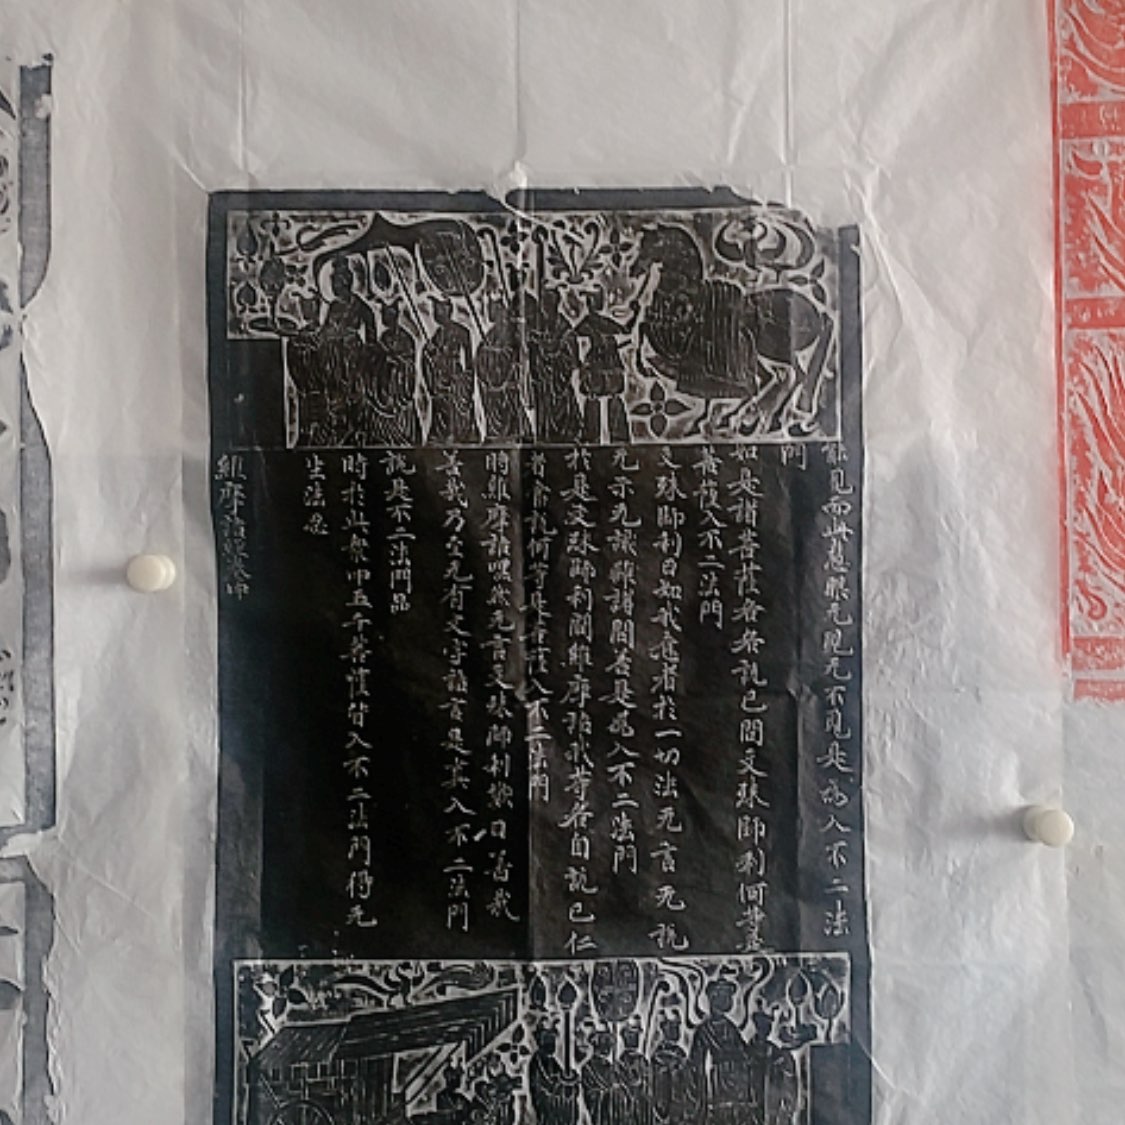 能見而此慧眼无見无不見是為入不二法
門
如是諸菩薩各各說已問文殊師利何等是
菩薩入不二法門
文殊師利曰如我意者於一切法无言无說
无示无識離諸問答是為入不二法門
於是文殊師利問維摩詰我等各自說已仁
者說何等是菩薩入不二法門
時維摩詰嘿然无言文殊師利歎曰善哉
善哉乃至无有文字語言是真入不二法門
說是不二法門品
時於此衆中五千菩薩皆入不二法門得无
生法忍
維摩詰經卷中